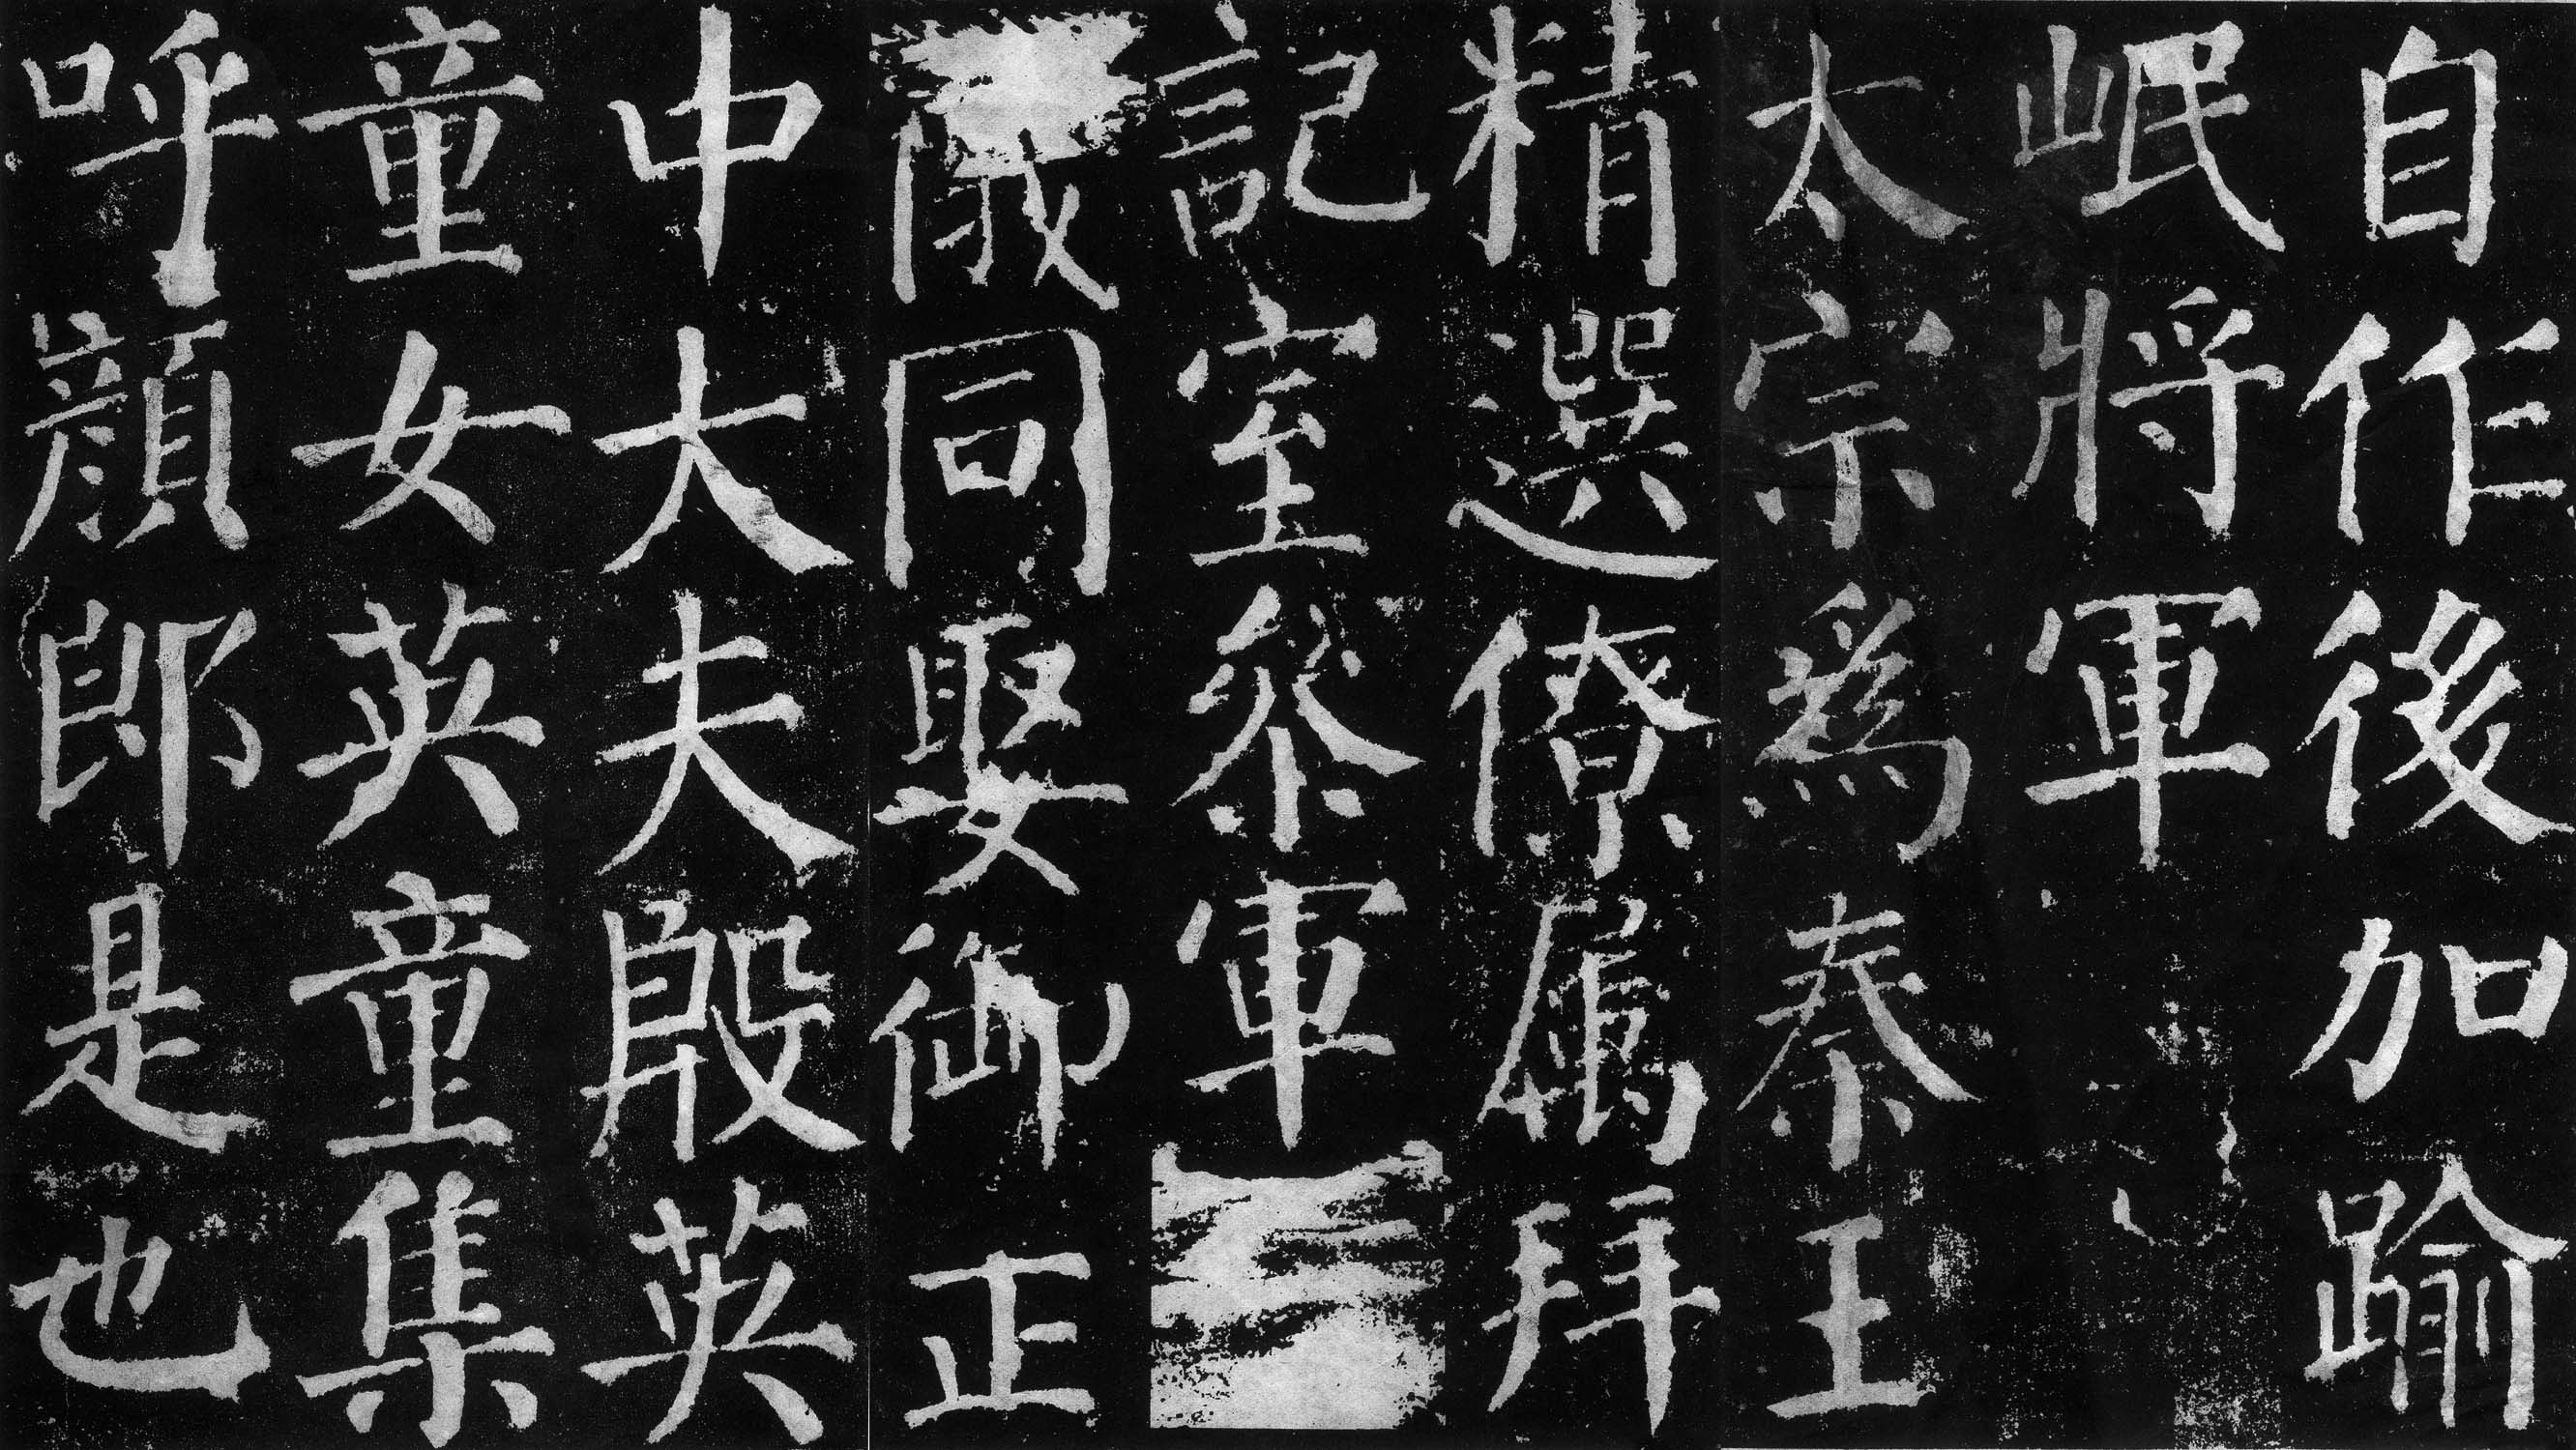 自作後加踰
岷將軍
太宗爲秦王
精選僚屬拜
記室叅軍
儀同娶御正
中大夫殷英
童女英童集
呼顔郎是也